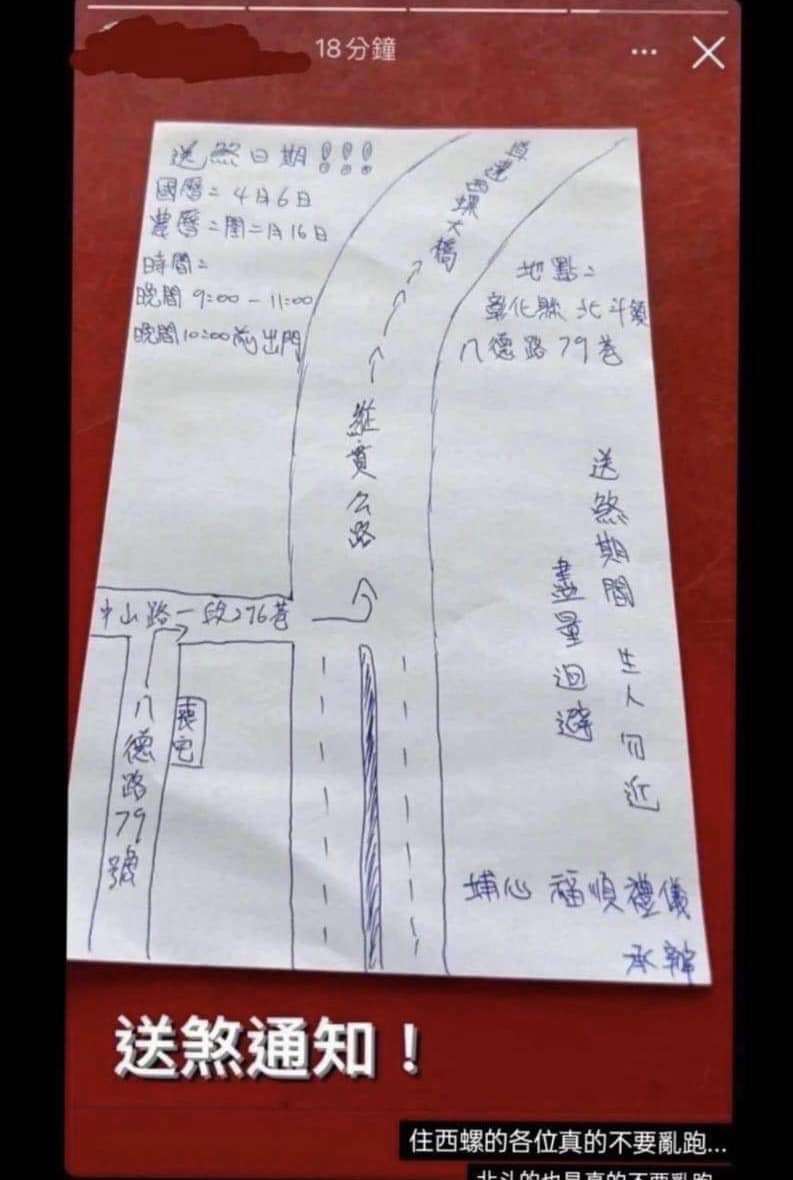 18分鐘
送煞日期!!!
國曆：4月6日
農曆：閏二月16日
時間：
晚間 9:00 - 11:00
晚間10:00前出門
直達西螺大橋
地點：
彰化縣 北斗鎮
八德路79巷
縱貫公路
送煞期間 生人勿近
盡量迴避
中山路一段276巷
喪宅
八德路79號
埔心 福順禮儀
承辦
送煞通知！
住西螺的各位真的不要亂跑...
北斗的也是真的不要亂跑